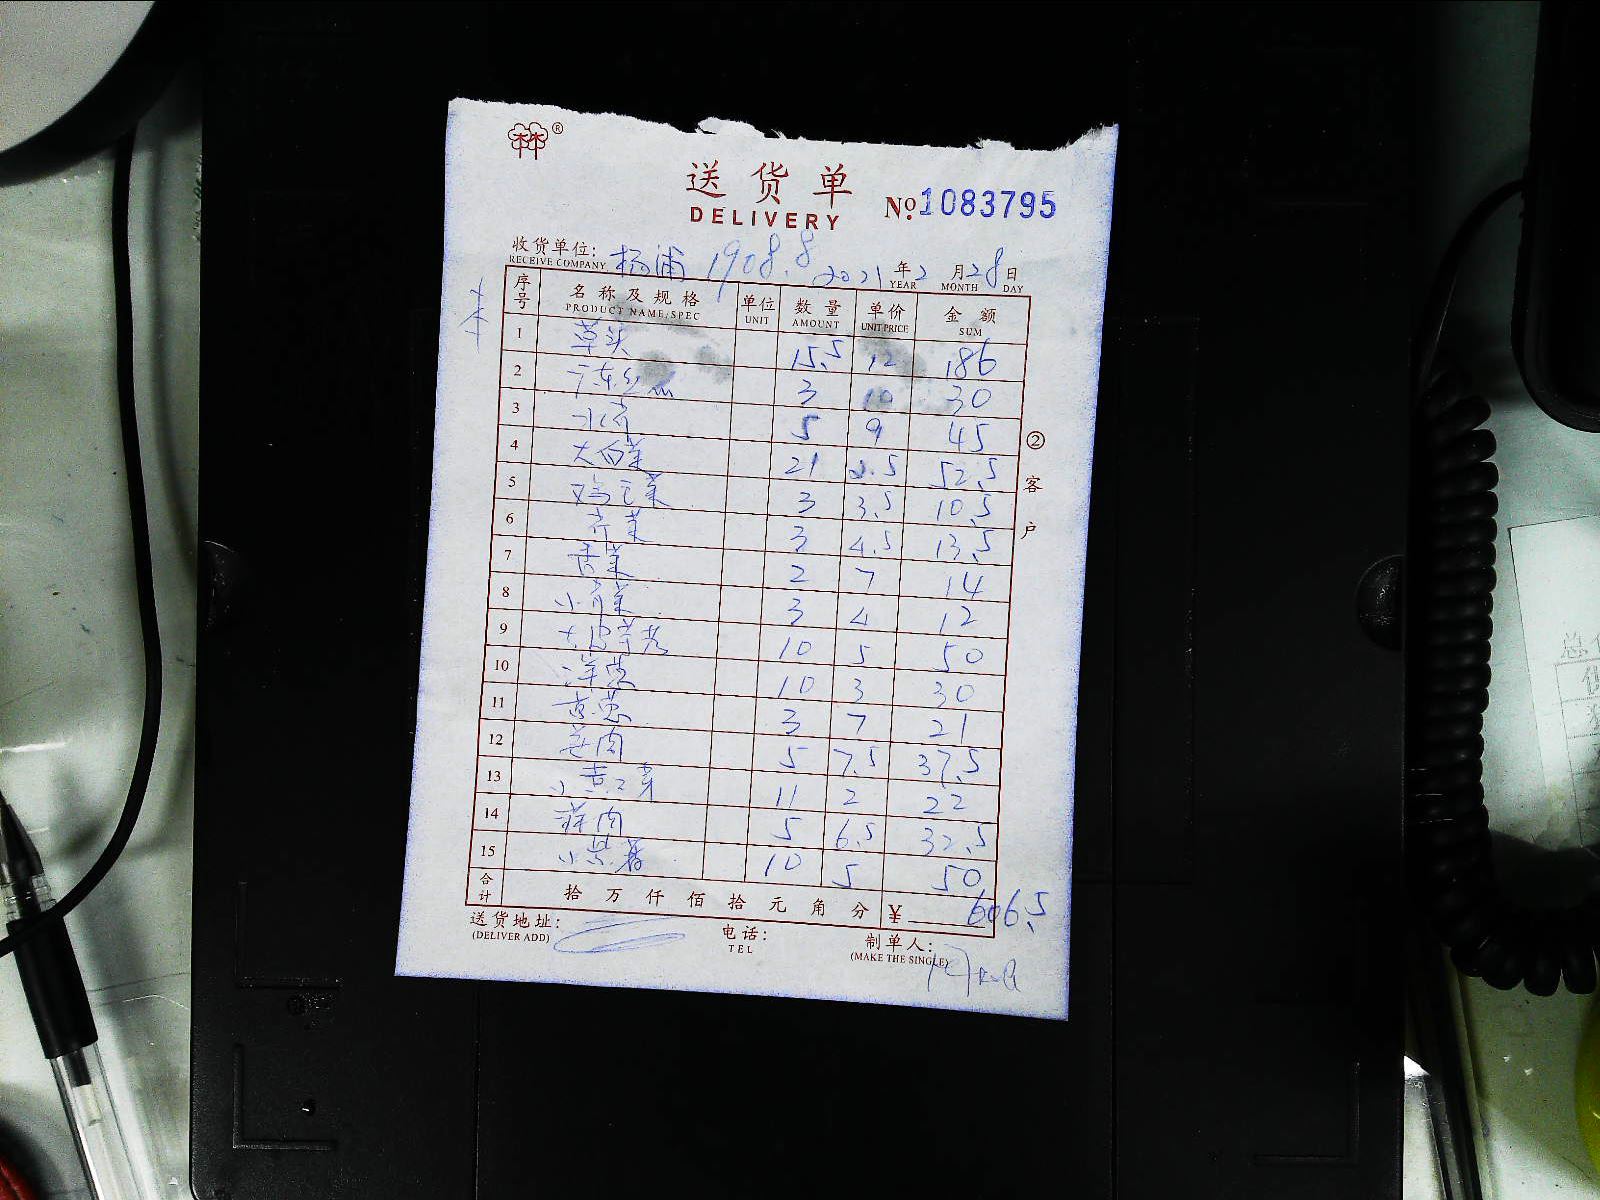 ®
送货单
DELIVERY
№1083795
收货单位: 杨浦 1908.8 2021年2月28日
RECEIVE COMPANY YEAR MONTH DAY
序号 名称及规格 单位 数量 单价 金额
PRODUCT NAME/SPEC UNIT AMOUNT UNIT PRICE SUM
1 草头 15.5 12 186
2 3 10 30
3 5 9 45
4 大白菜 21 2.5 52.5
5 鸡毛菜 3 3.5 10.5
6 芹菜 3 4.5 13.5
7 香菜 2 7 14
8 小青菜 3 4 12
9 10 5 50
10 洋葱 10 3 30
11 京葱 3 7 21
12 5 7.5 37.5
13 小黄豆芽 11 2 22
14 5 6.5 32.5
15 10 5 50
合计 拾万仟佰拾元角分 ¥ 606.5
送货地址: 电话: 制单人:
(DELIVER ADD) TEL (MAKE THE SINGLE)
②客户